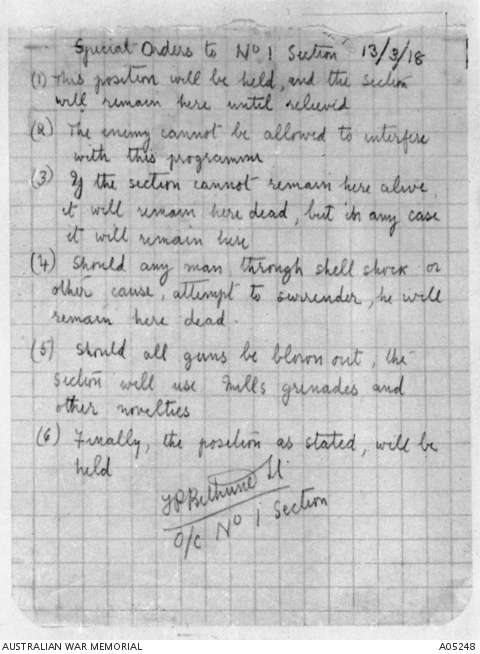 Special Orders to No 1 Section 13/3/18
(1) This position will be held, and the section
will remain here until relieved
(2) The enemy cannot be allowed to interfere
with this programme
(3) If the section cannot remain here alive,
it will remain here dead, but in any case
it will remain here
(4) Should any man, through shell shock or
other cause, attempt to surrender, he will
remain here dead.
(5) Should all guns be blown out, the
section will use Mills grenades and
other novelties
(6) Finally, the position as stated, will be
held
FP Bethune Lt
O/C No 1 Section
AUSTRALIAN WAR MEMORIAL
A05248